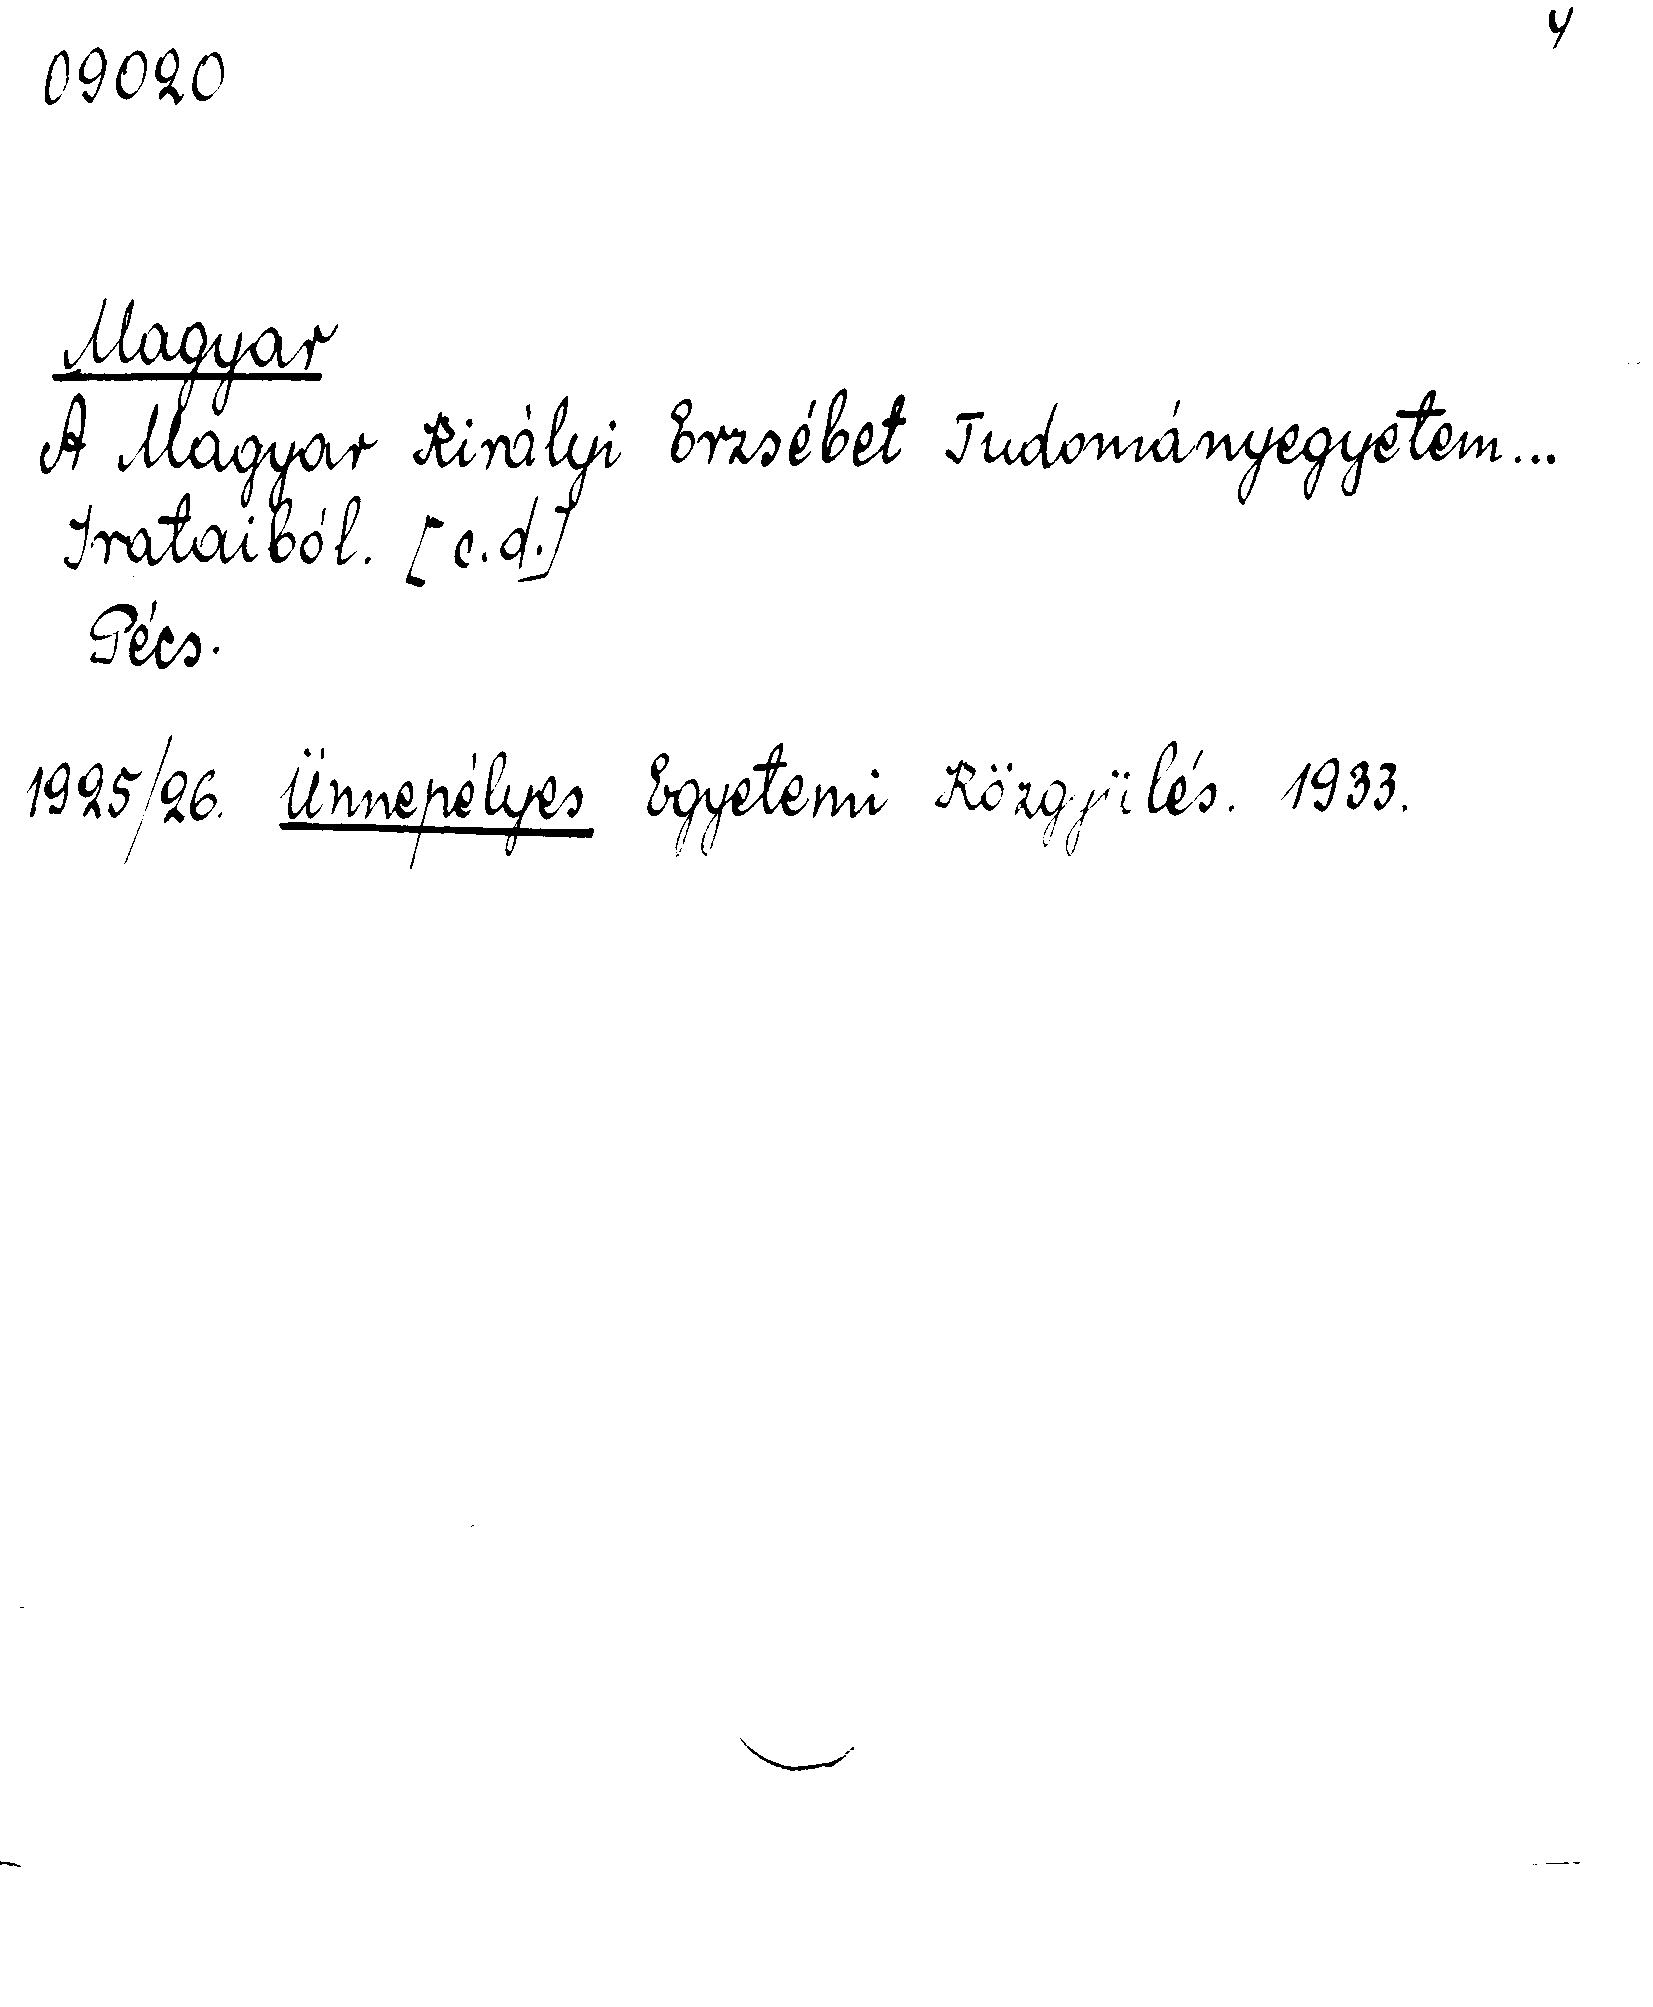 4
09020
Magyar
A Magyar Királyi Erzsébet Tudományegyetem...
Irataiból. [c.d.]
Pécs.
1925/26. Ünnepélyes Egyetemi Közgyülés. 1933.